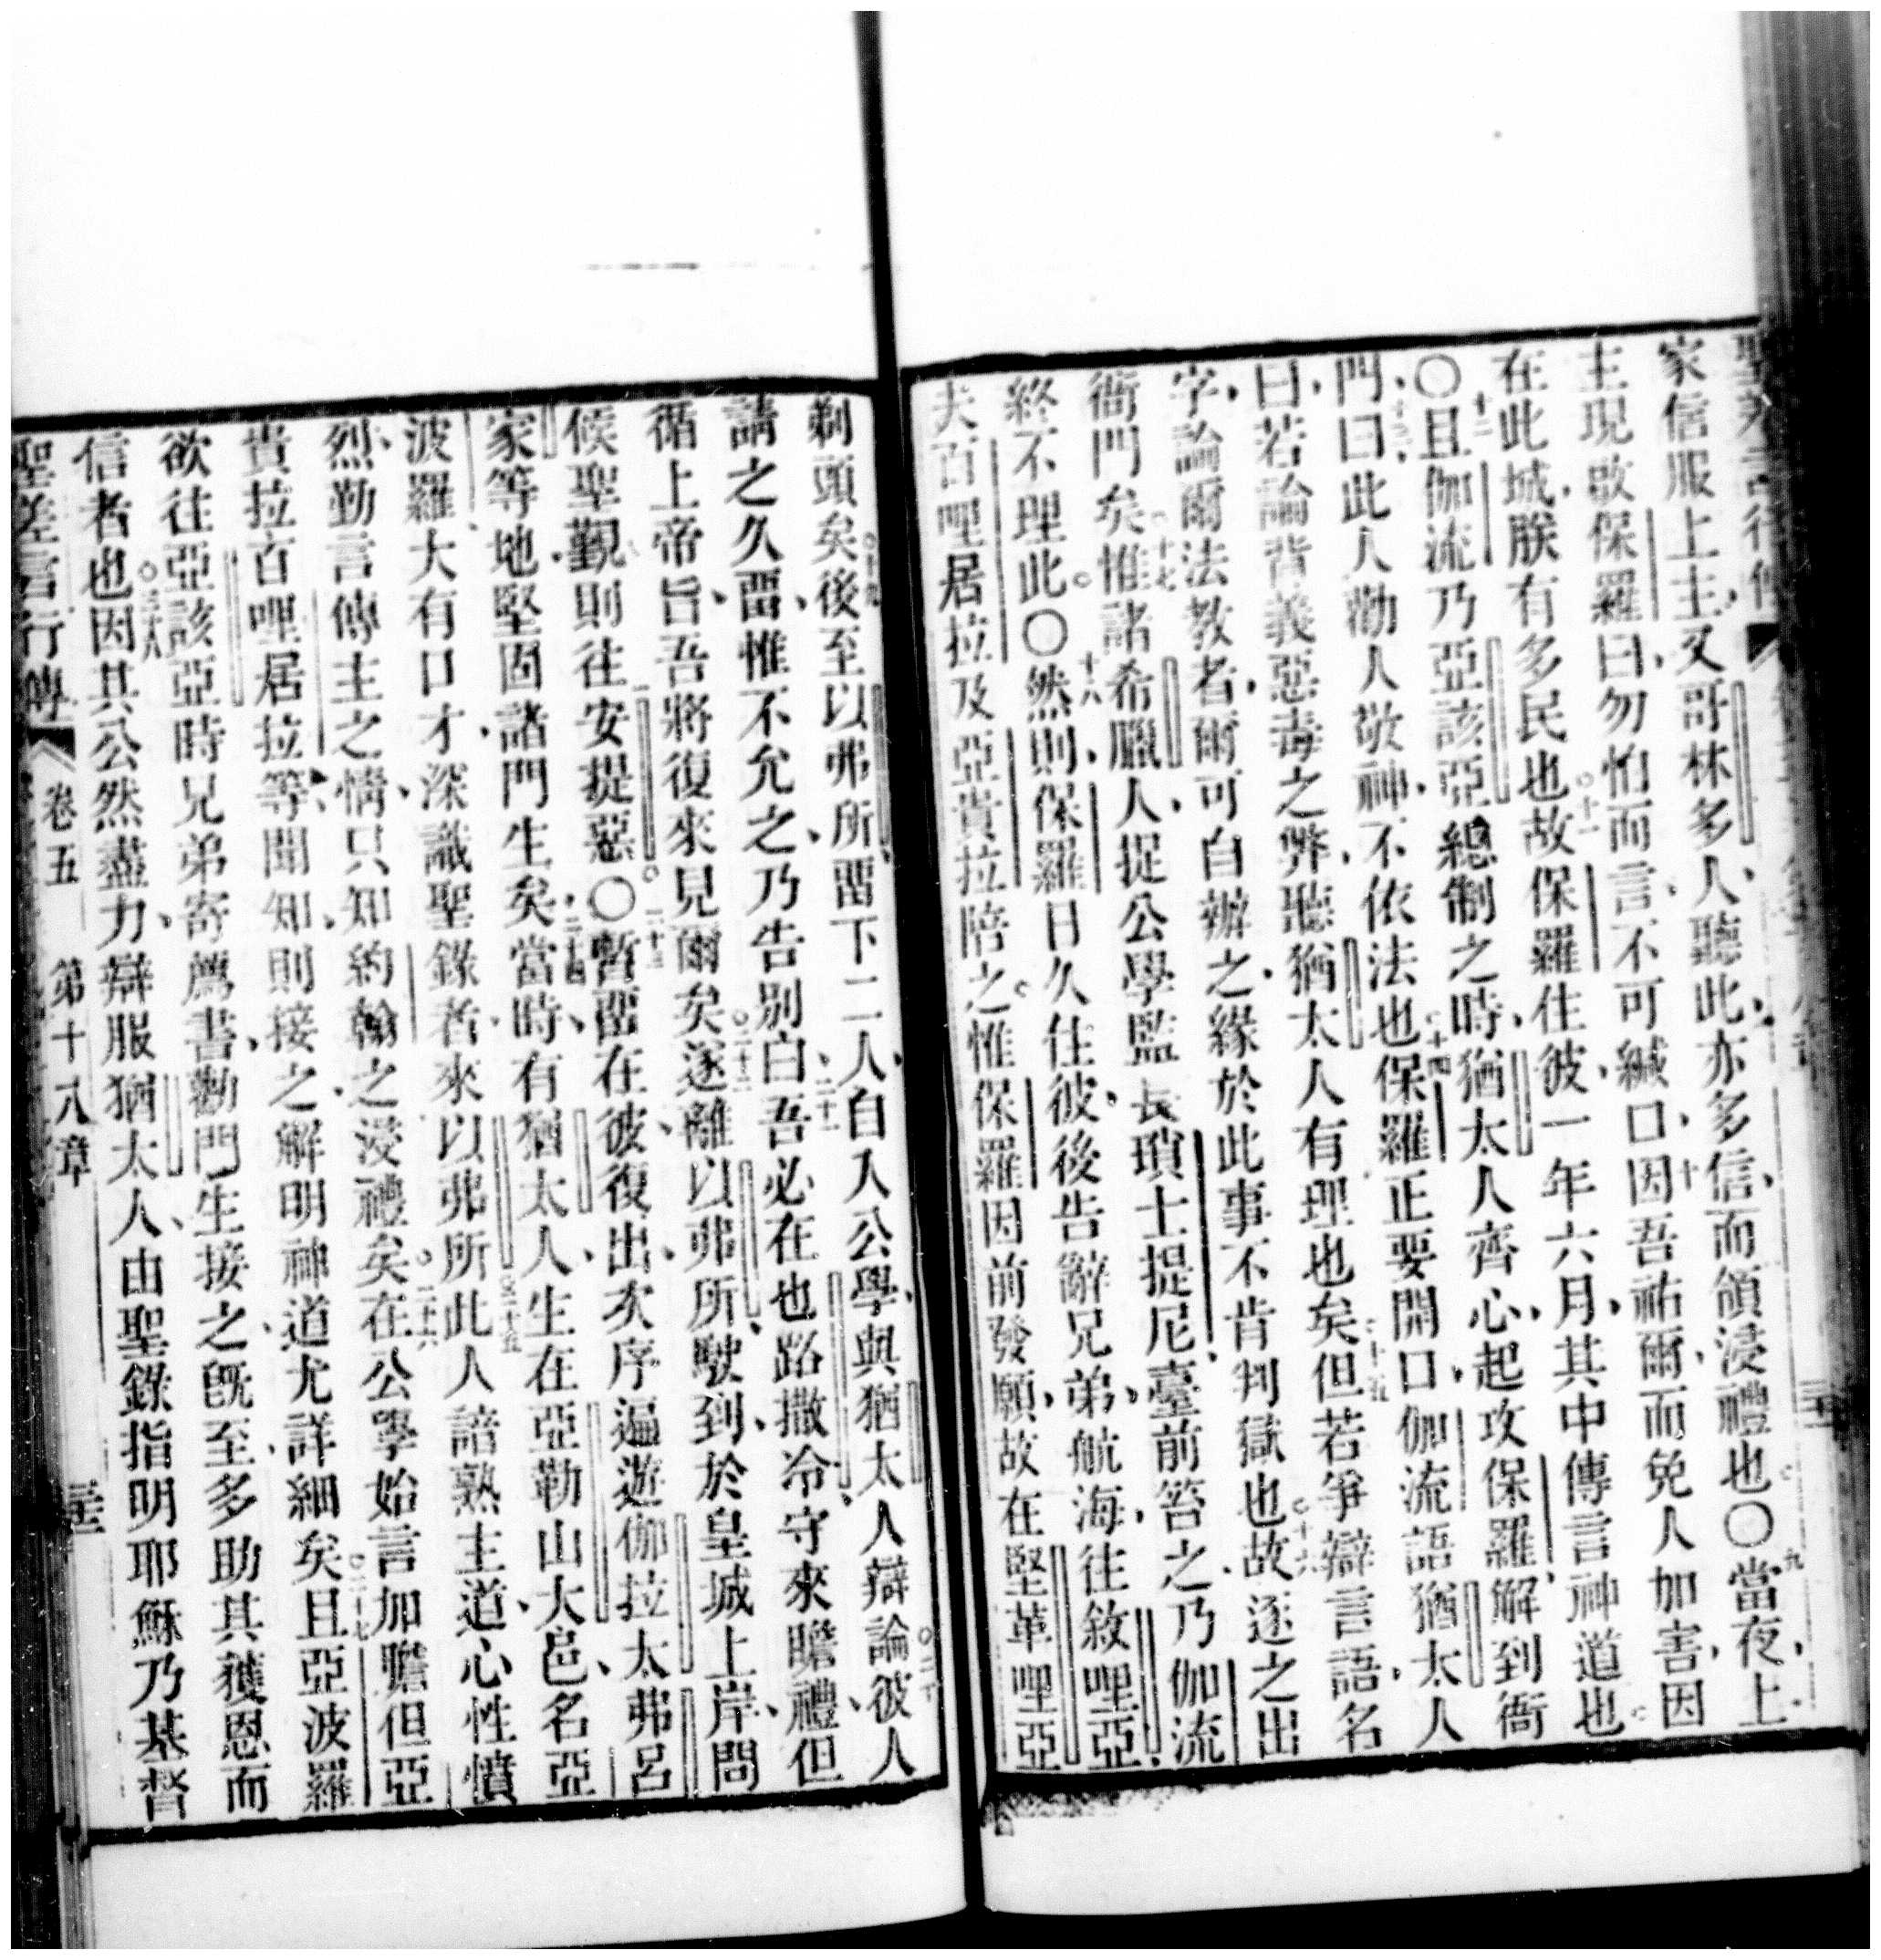 家信服上主、又哥林多人、聽此、亦多信、而領浸禮也。〇九當夜、上
主現啟保羅曰、勿怕而言、不可緘口、十因吾祐爾、而免人加害、因
在此城、朕有多民也。十一故保羅住彼、一年六月、其中傳言神道也。
〇十二且伽流乃亞該亞總制之時、猶太人齊心、起攻保羅、解到衙
門、十三曰、此人勸人敬神、不依法也。十四保羅正要開口、伽流語猶太人
曰、若論背義惡毒之弊、聽猶太人有理也矣。十五但若爭辯言語、名
字、論爾法教者、爾可自辦之、緣於此事不肯判獄也。十六故逐之出
衙門矣。十七惟諸希臘人、捉公學監長瑣士提尼、臺前笞之、乃伽流
終不理此。〇十八然則、保羅日久住彼、後告辭兄弟、航海、往敘哩亞、
夫百哩居拉及亞貴拉陪之。惟保羅因前發願、故在堅革哩亞
剃頭矣。十九後至以弗所、畱下二人、自入公學、與猶太人辯論。二十彼人
請之久畱、惟不允之、乃告別、二十一白、吾必在也路撒冷、守來瞻禮、但
循上帝旨、吾將復來見爾矣。二十二遂離以弗所、駛到於皇城、上岸、問
候聖覲、則往安提惡。〇二十三暫畱在彼、復出、次序遍遊伽拉太弗呂
家等地、堅固諸門生矣。二十四當時、有猶太人、生在亞勒山大邑、名亞
波羅、大有口才、深識聖錄者、來以弗所。二十五此人諳熟主道、心性憤
烈、勤言傳主之情、只知約翰之浸禮矣。二十六在公學始言加膽、但亞
貴拉百哩居拉等聞知、則接之、解明神道尤詳細矣。二十七且亞波羅
欲往亞該亞時、兄弟寄薦書、勸門生接之、旣至、多助其獲恩而
信者也。二十八因其公然盡力、辯服猶太人、由聖錄指明耶穌乃基督
聖差言行傳 卷五 第十八章